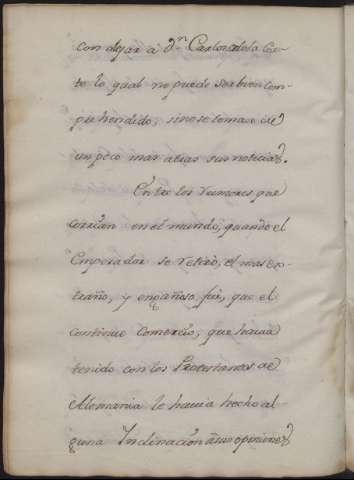 con dejar à Dn. Carlos de la Cor-
te lo qual no puede ser buen com-
prehendido, sino se toman de
un poco mas atras sus noticias.
Entre los rumores que
corrian en el mundo, quando el
Emperador se retirò, el mas ex-
traño, y engañoso fuè, que el
continuo Comercio, que havia
tenido con los Protestantes de
Alemania le havia hecho al-
guna Inclinacion à sus opiniones